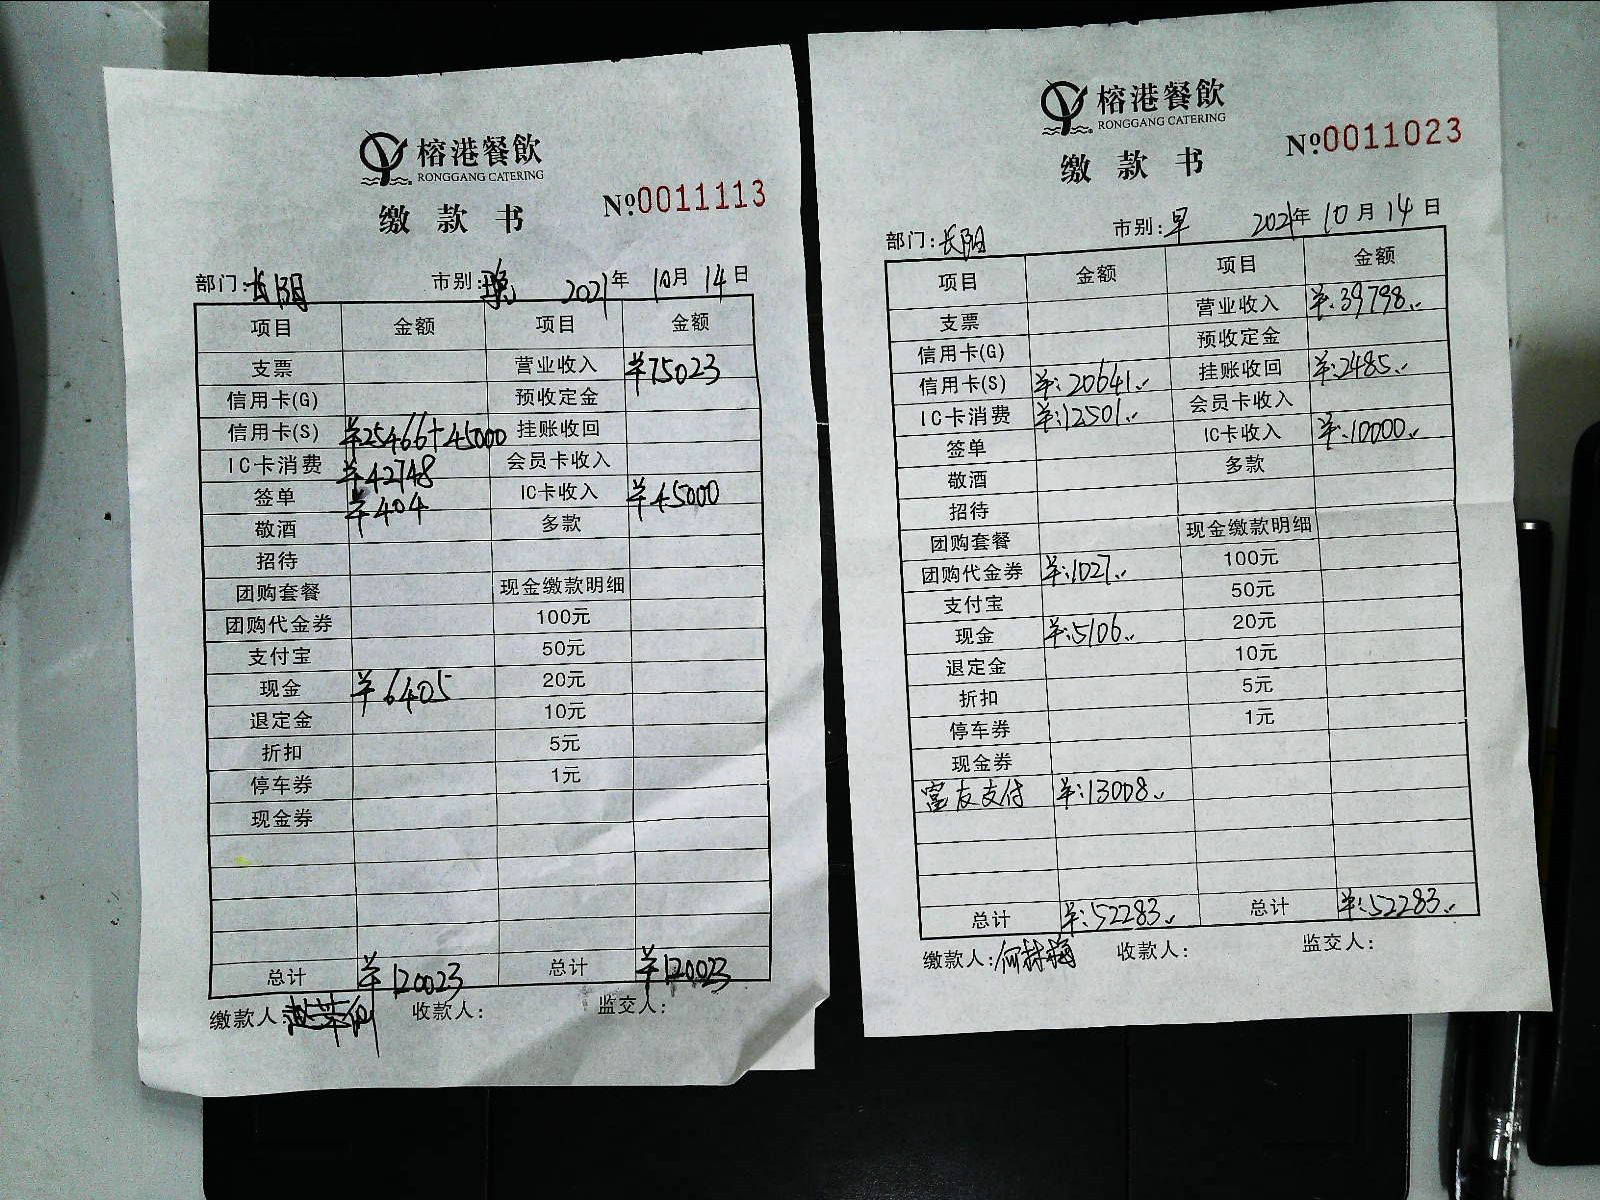 榕港餐飲
RONGGANG CATERING
缴款书
№0011113
部门:长阳 市别:晚 2021年10月14日
项目 金额 项目 金额
支票 营业收入 ¥75023
信用卡(G) 预收定金
信用卡(S) ¥25466+45000 挂账收回
IC卡消费 ¥42748 会员卡收入
签单 ¥404 IC卡收入 ¥45000
敬酒 多款
招待
团购套餐 现金缴款明细
团购代金券 100元
支付宝 50元
现金 ¥6405 20元
退定金 10元
折扣 5元
停车券 1元
现金券
总计 ¥120023 总计 ¥120023
缴款人: 收款人: 监交人:
榕港餐飲
RONGGANG CATERING
缴款书
№0011023
部门:长阳 市别:早 2021年10月14日
项目 金额 项目 金额
支票 营业收入 ¥:39798.
信用卡(G) 预收定金
信用卡(S) ¥:20641. 挂账收回 ¥:2485.
IC卡消费 ¥:12501. 会员卡收入
签单 IC卡收入 ¥:10000.
敬酒 多款
招待
团购套餐 现金缴款明细
团购代金券 ¥:1027. 100元
支付宝 50元
现金 ¥:5106. 20元
退定金 10元
折扣 5元
停车券 1元
现金券
富友支付 ¥:13008.
总计 ¥:52283. 总计 ¥:52283.
缴款人:何林梅 收款人: 监交人: